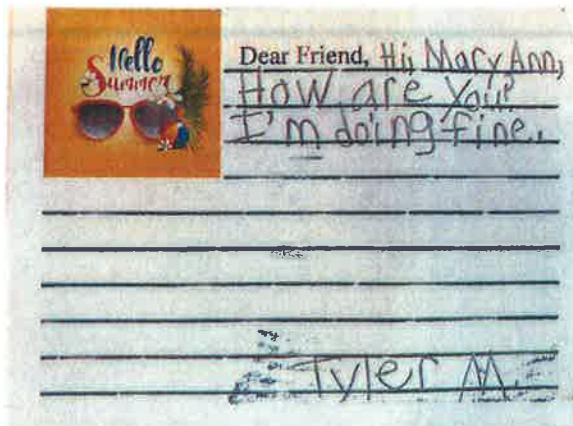 Hello
Summer
Dear Friend, Hi, Mary Ann,
How are you?
I'm doing fine.
Tyler M.